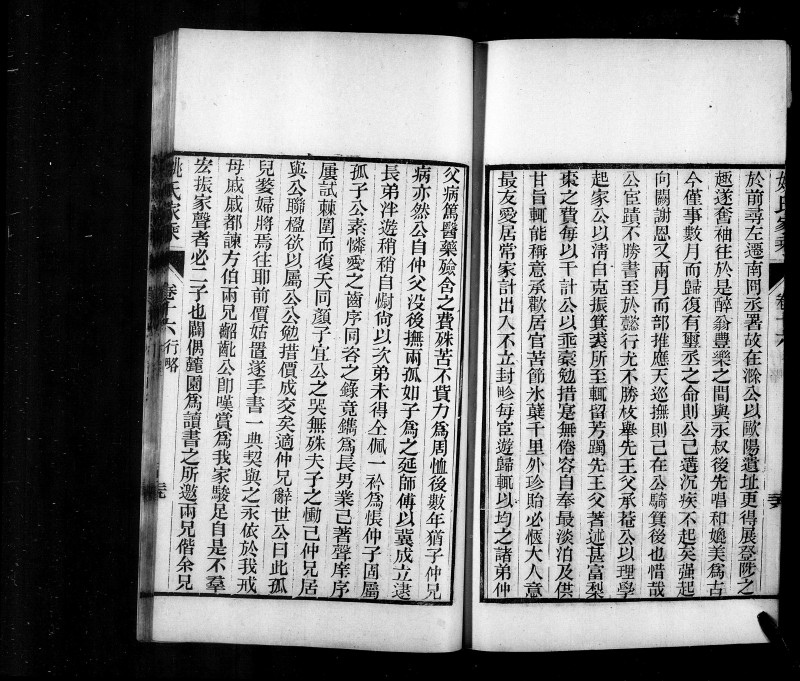 於前尋左遷南冏丞署故在滁公以歐陽遺址更得展登陟之
趣遂奮袖往於是醉翁豐樂之間與永叔後先唱和媲美為古
今僅事數月而歸復有璽丞之命則公已遘沉疾不起矣强起
向闕謝恩又兩月而部推應天巡撫則已在公騎箕後也惜哉
公宦蹟不勝書至於懿行尤不勝枚舉先王父承菴公以理學
起家公以清白克振箕裘所至輒留芳躅先王父著述甚富梨
棗之費每以千計公以乖橐勉措寔無倦容自奉最淡泊及供
甘旨輒能稱意承歡居官苦節氷蘖千里外珍貽必愜大人意
最友愛居常家計出入不立封畛每宦遊歸輒以均之諸弟仲
父病篤醫藥殮含之費殊苦不貲力為周恤後數年猶子仲兄
病亦然公自仲父没後撫兩孤如子為之延師傅以冀成立逮
長弟泮遊稍稍自慰尚以次弟未得仝佩一衿為悵仲子固屬
孤子公素憐愛之齒序同容之錄竟鐫為長男業已著聲庠序
屢試棘圍而復夭同顏子宜公之哭無殊夫子之慟已仲兄居
與公聯楹欲以屬公公勉措價成交矣適仲兄辭世公曰此孤
兒嫠婦將焉往耶前價姑置遂手書一典契與之永依於我戒
母戚戚都諫方伯兩兄齠齔公即嘆賞為我家駿足自是不羣
宏振家聲者必二子也闢偶麓園為讀書之所邀兩兄偕余兄
姚氏家乘 卷十六 行略